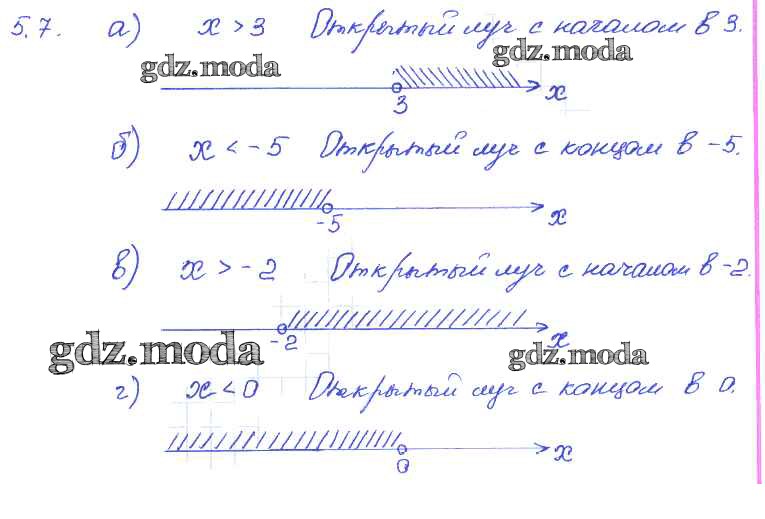 5.7. а) x > 3 Открытый луч с началом в 3.
gdz.moda gdz.moda
3 x
б) x < -5 Открытый луч с концом в -5.
-5 x
в) x > -2 Открытый луч с началом в -2.
-2 x
gdz.moda gdz.moda
г) x < 0 Открытый луч с концом в 0.
0 x